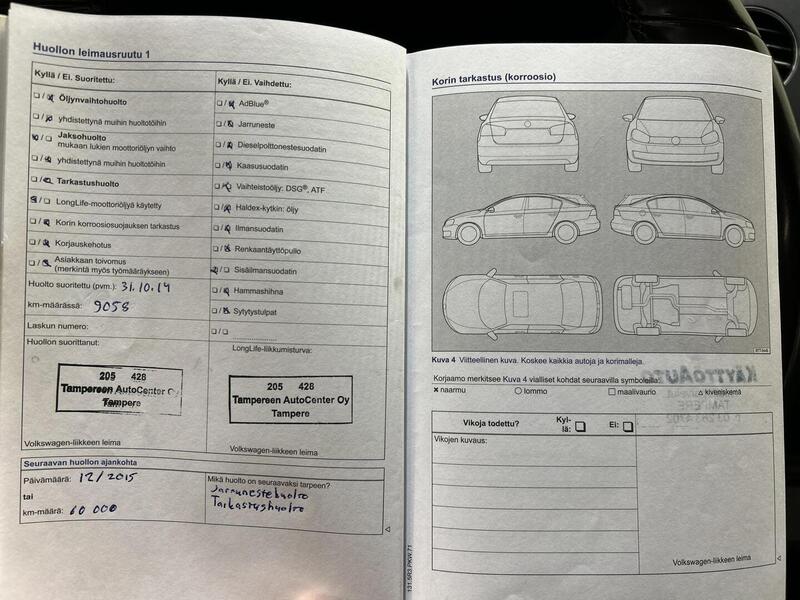 Huollon leimausruutu 1
Kyllä / Ei. Suoritettu:
Öljynvaihtohuolto
yhdistettynä muihin huoltotöihin
Jaksohuolto
mukaan lukien moottoriöljyn vaihto
yhdistettynä muihin huoltotöihin
Tarkastushuolto
LongLife-moottoriöljyä käytetty
Korin korroosiosuojauksen tarkastus
Korjauskehotus
Asiakkaan toivomus
(merkintä myös työmääräykseen)
Huolto suoritettu (pvm.): 31.10.14
km-määrässä: 9058
Laskun numero:
Huollon suorittanut:
205 428
Tampereen AutoCenter Oy
Tampere
Volkswagen-liikkeen leima
Kyllä / Ei. Vaihdettu:
AdBlue®
Jarruneste
Dieselpolttonestesuodatin
Kaasusuodatin
Vaihteistoöljy: DSG®, ATF
Haldex-kytkin: öljy
Ilmansuodatin
Renkaantäyttöpullo
Sisäilmansuodatin
Hammashihna
Sytytystulpat
LongLife-liikkumisturva:
205 428
Tampereen AutoCenter Oy
Tampere
Volkswagen-liikkeen leima
Seuraavan huollon ajankohta
Päivämäärä: 12/2015
tai
km-määrä: 60 000
Mikä huolto on seuraavaksi tarpeen?
Jarrunestehuolto
Tarkastushuolto
Korin tarkastus (korroosio)
Kuva 4 Viitteellinen kuva. Koskee kaikkia autoja ja korimalleja.
Korjaamo merkitsee Kuva 4 vialliset kohdat seuraavilla symboleilla:
× naarmu ○ lommo □ maalivaurio △ kiveniskemä
Vikoja todettu? Kyl-
lä: Ei:
Vikojen kuvaus:
Volkswagen-liikkeen leima
131.5R3.PKW.71